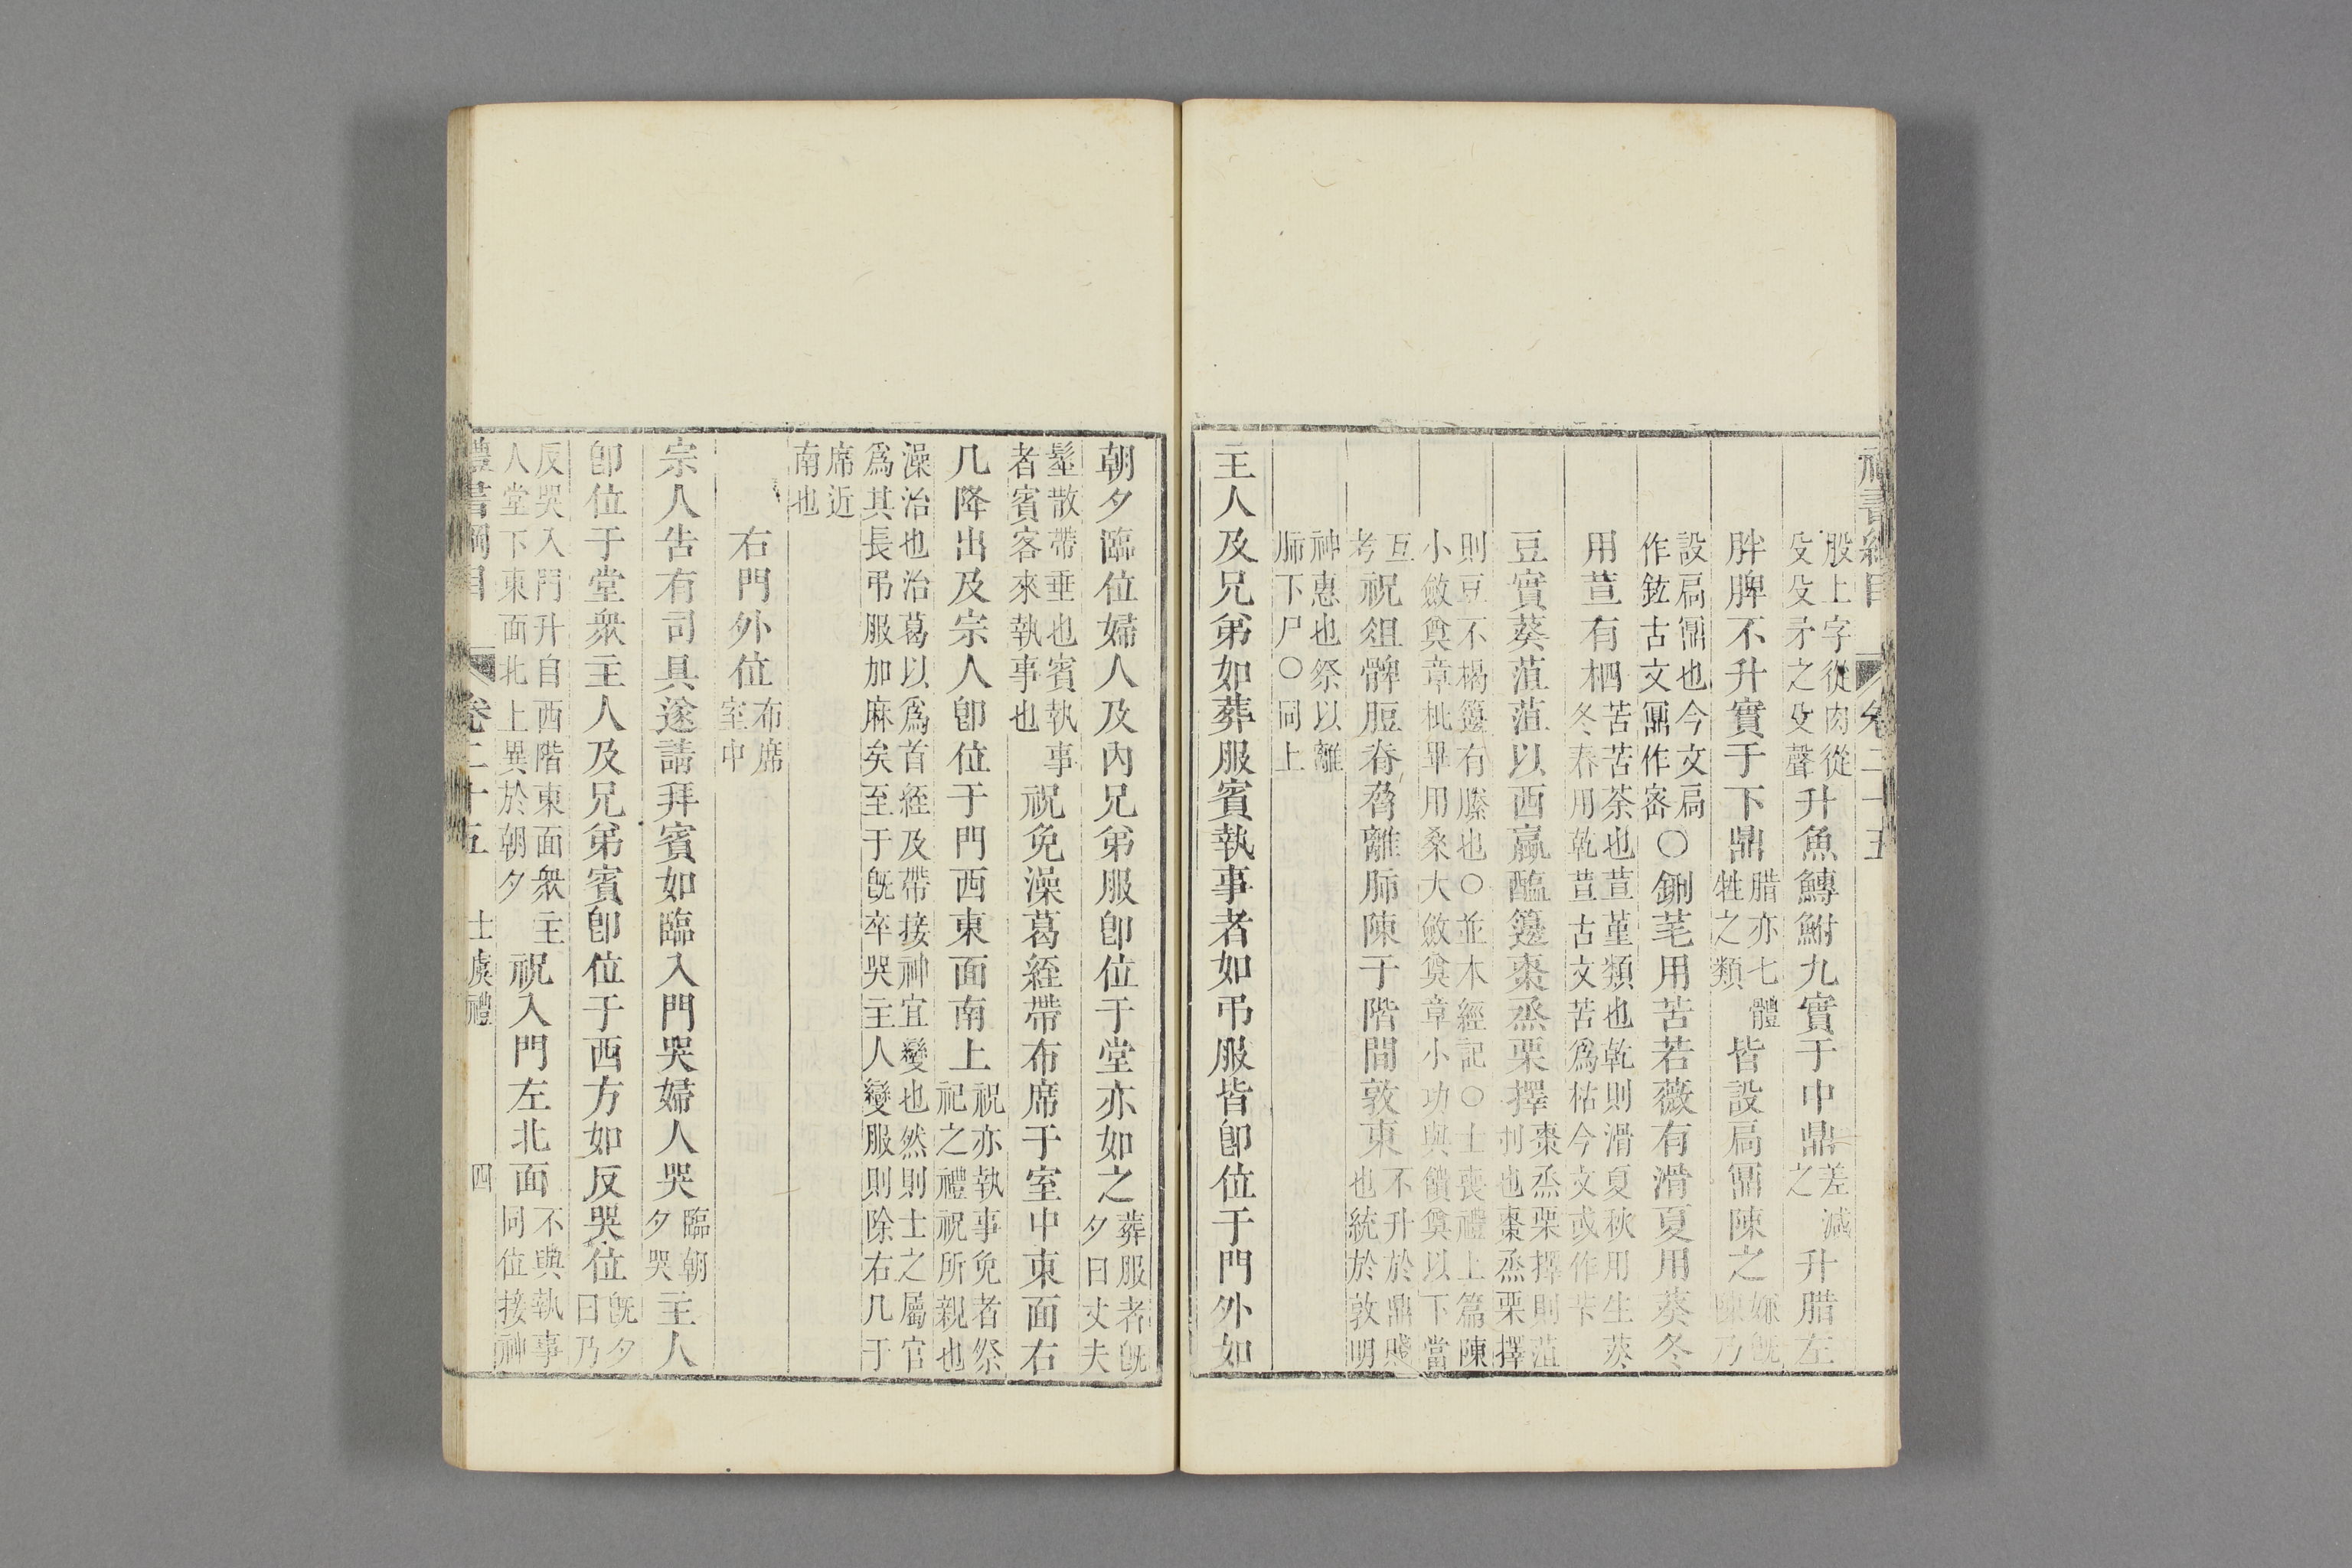 禮書綱目 卷二十五
股上字從肉從殳殳矛之殳聲升魚鱄鮒九實于中鼎差減之升腊左
胖脾不升實于下鼎腊亦七體牲之類皆設扃鼏陳之嫌既陳乃
設扃鼏也今文扃作鉉古文鼏作密○鉶芼用苦若薇有滑夏用葵冬
用荁有柶苦苦荼也荁堇類也乾則滑夏秋用生葵冬春用乾荁古文苦爲枯今文或作苄
豆實葵菹菹以西蠃醢籩棗烝栗擇棗烝栗擇則菹刌也棗烝栗擇
則豆不楬籩有縢也○並木經記○士喪禮上篇陳小斂奠章枇畢用桑大斂奠章小功與饋奠以下當
互考祝俎髀脰脊脅離肺陳于階間敦東不升於鼎賤也統於敦明
神惠也祭以離肺下尸○同上
主人及兄弟如葬服賓執事者如弔服皆卽位于門外如
朝夕臨位婦人及內兄弟服卽位于堂亦如之葬服者旣夕曰丈夫
髽散帶垂也賓執事者賓客來執事也祝免澡葛絰帶布席于室中東面右
几降出及宗人卽位于門西東面南上祝亦執事免者祭祀之禮祝所親也
澡治也治葛以爲首絰及帶接神宜變也然則士之屬官爲其長弔服加麻矣至于旣卒哭主人變服則除右几于
席近南也
右門外位布席室中
宗人告有司具遂請拜賓如臨入門哭婦人哭臨朝夕哭主人
卽位于堂衆主人及兄弟賓卽位于西方如反哭位旣夕曰乃
反哭入門升自西階東面衆主人堂下東面北上異於朝夕祝入門左北面不與執事同位接神
禮書綱目 卷二十五 士虞禮 四